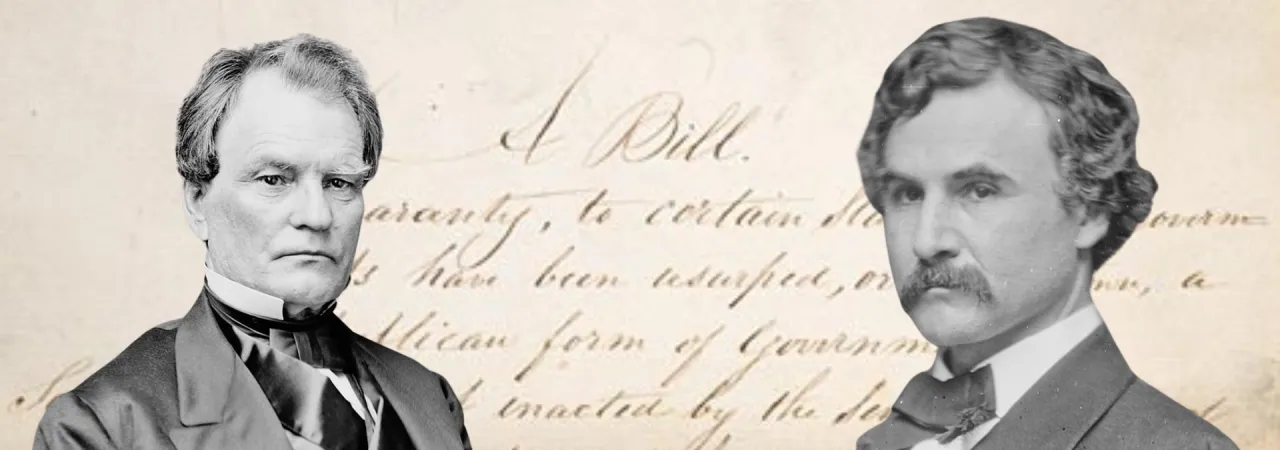 A Bill.
aranty, to certain Sta overn=
ts have been usurped, or wn, a
ublican form of Governm
S t enacted by the Sen